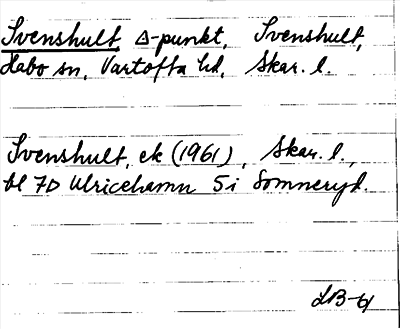 Svenshult Δ-punkt, Svenshult,
Habo sn, Vartofta hd, Skar. l.
Svenshult, ek (1961), Skar. l.,
bl 7D Ulricehamn 5i Somneryd.
LB-61